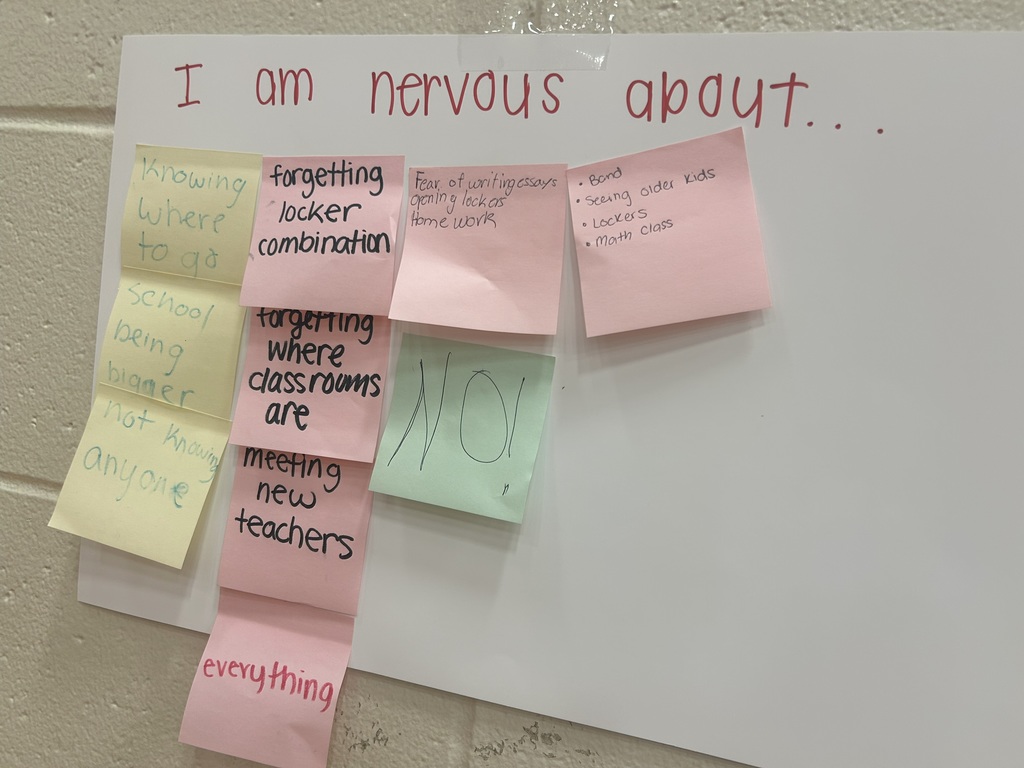 I am nervous about...
Knowing
where
to go
school
being
bigger
not knowing
anyone
forgetting
locker
combination
forgetting
where
classrooms
are
meeting
new
teachers
everything
Fear of writing essays
opening lockers
Home work
NO!
• Band
• Seeing older kids
• Lockers
• Math class